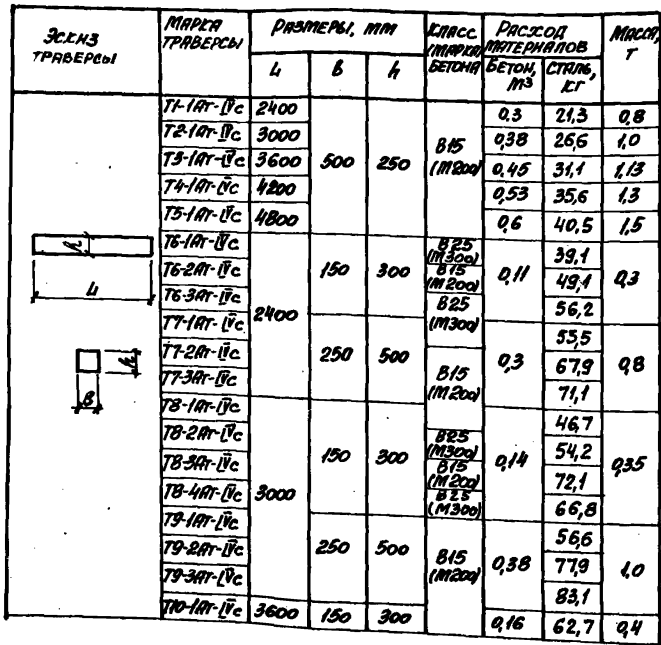 Эскиз траверсы Марка траверсы Размеры, мм Класс (марка) бетона Расход материалов Масса, т
L в h Бетон, м3 Сталь, кг
Т1-1Ат-IVс 2400 500 250 В15 (М200) 0,3 21,3 0,8
Т2-1Ат-IVс 3000 0,38 26,6 1,0
Т3-1Ат-IVс 3600 0,45 31,1 1,13
Т4-1Ат-IVс 4200 0,53 35,6 1,3
Т5-1Ат-IVс 4800 0,6 40,5 1,5
Т6-1Ат-IVс 2400 150 300 В25 (М300) 0,11 39,1 0,3
Т6-2Ат-IVс В15 (М200) 49,1
Т6-3Ат-IVс В25 (М300) 56,2
Т7-1Ат-IVс 250 500 0,3 53,5 0,8
Т7-2Ат-IVс В15 (М200) 67,9
Т7-3Ат-IVс 71,1
Т8-1Ат-IVс 3000 150 300 0,14 46,7 0,35
Т8-2Ат-IVс В25 (М300) 54,2
Т8-3Ат-IVс В15 (М200) 72,1
Т8-4Ат-IVс В25 (М300) 66,8
Т9-1Ат-IVс 250 500 В15 (М200) 0,38 56,6 1,0
Т9-2Ат-IVс 77,9
Т9-3Ат-IVс 83,1
Т10-1Ат-IVс 3600 150 300 0,16 62,7 0,4
h
L
h
в